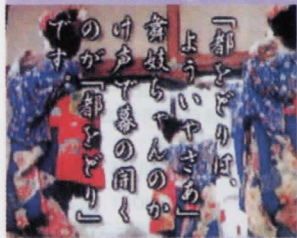 「都をどりは、
よういやさあ」
舞妓ちゃんのか
け声で幕の開く
のが『都をどり』
です。